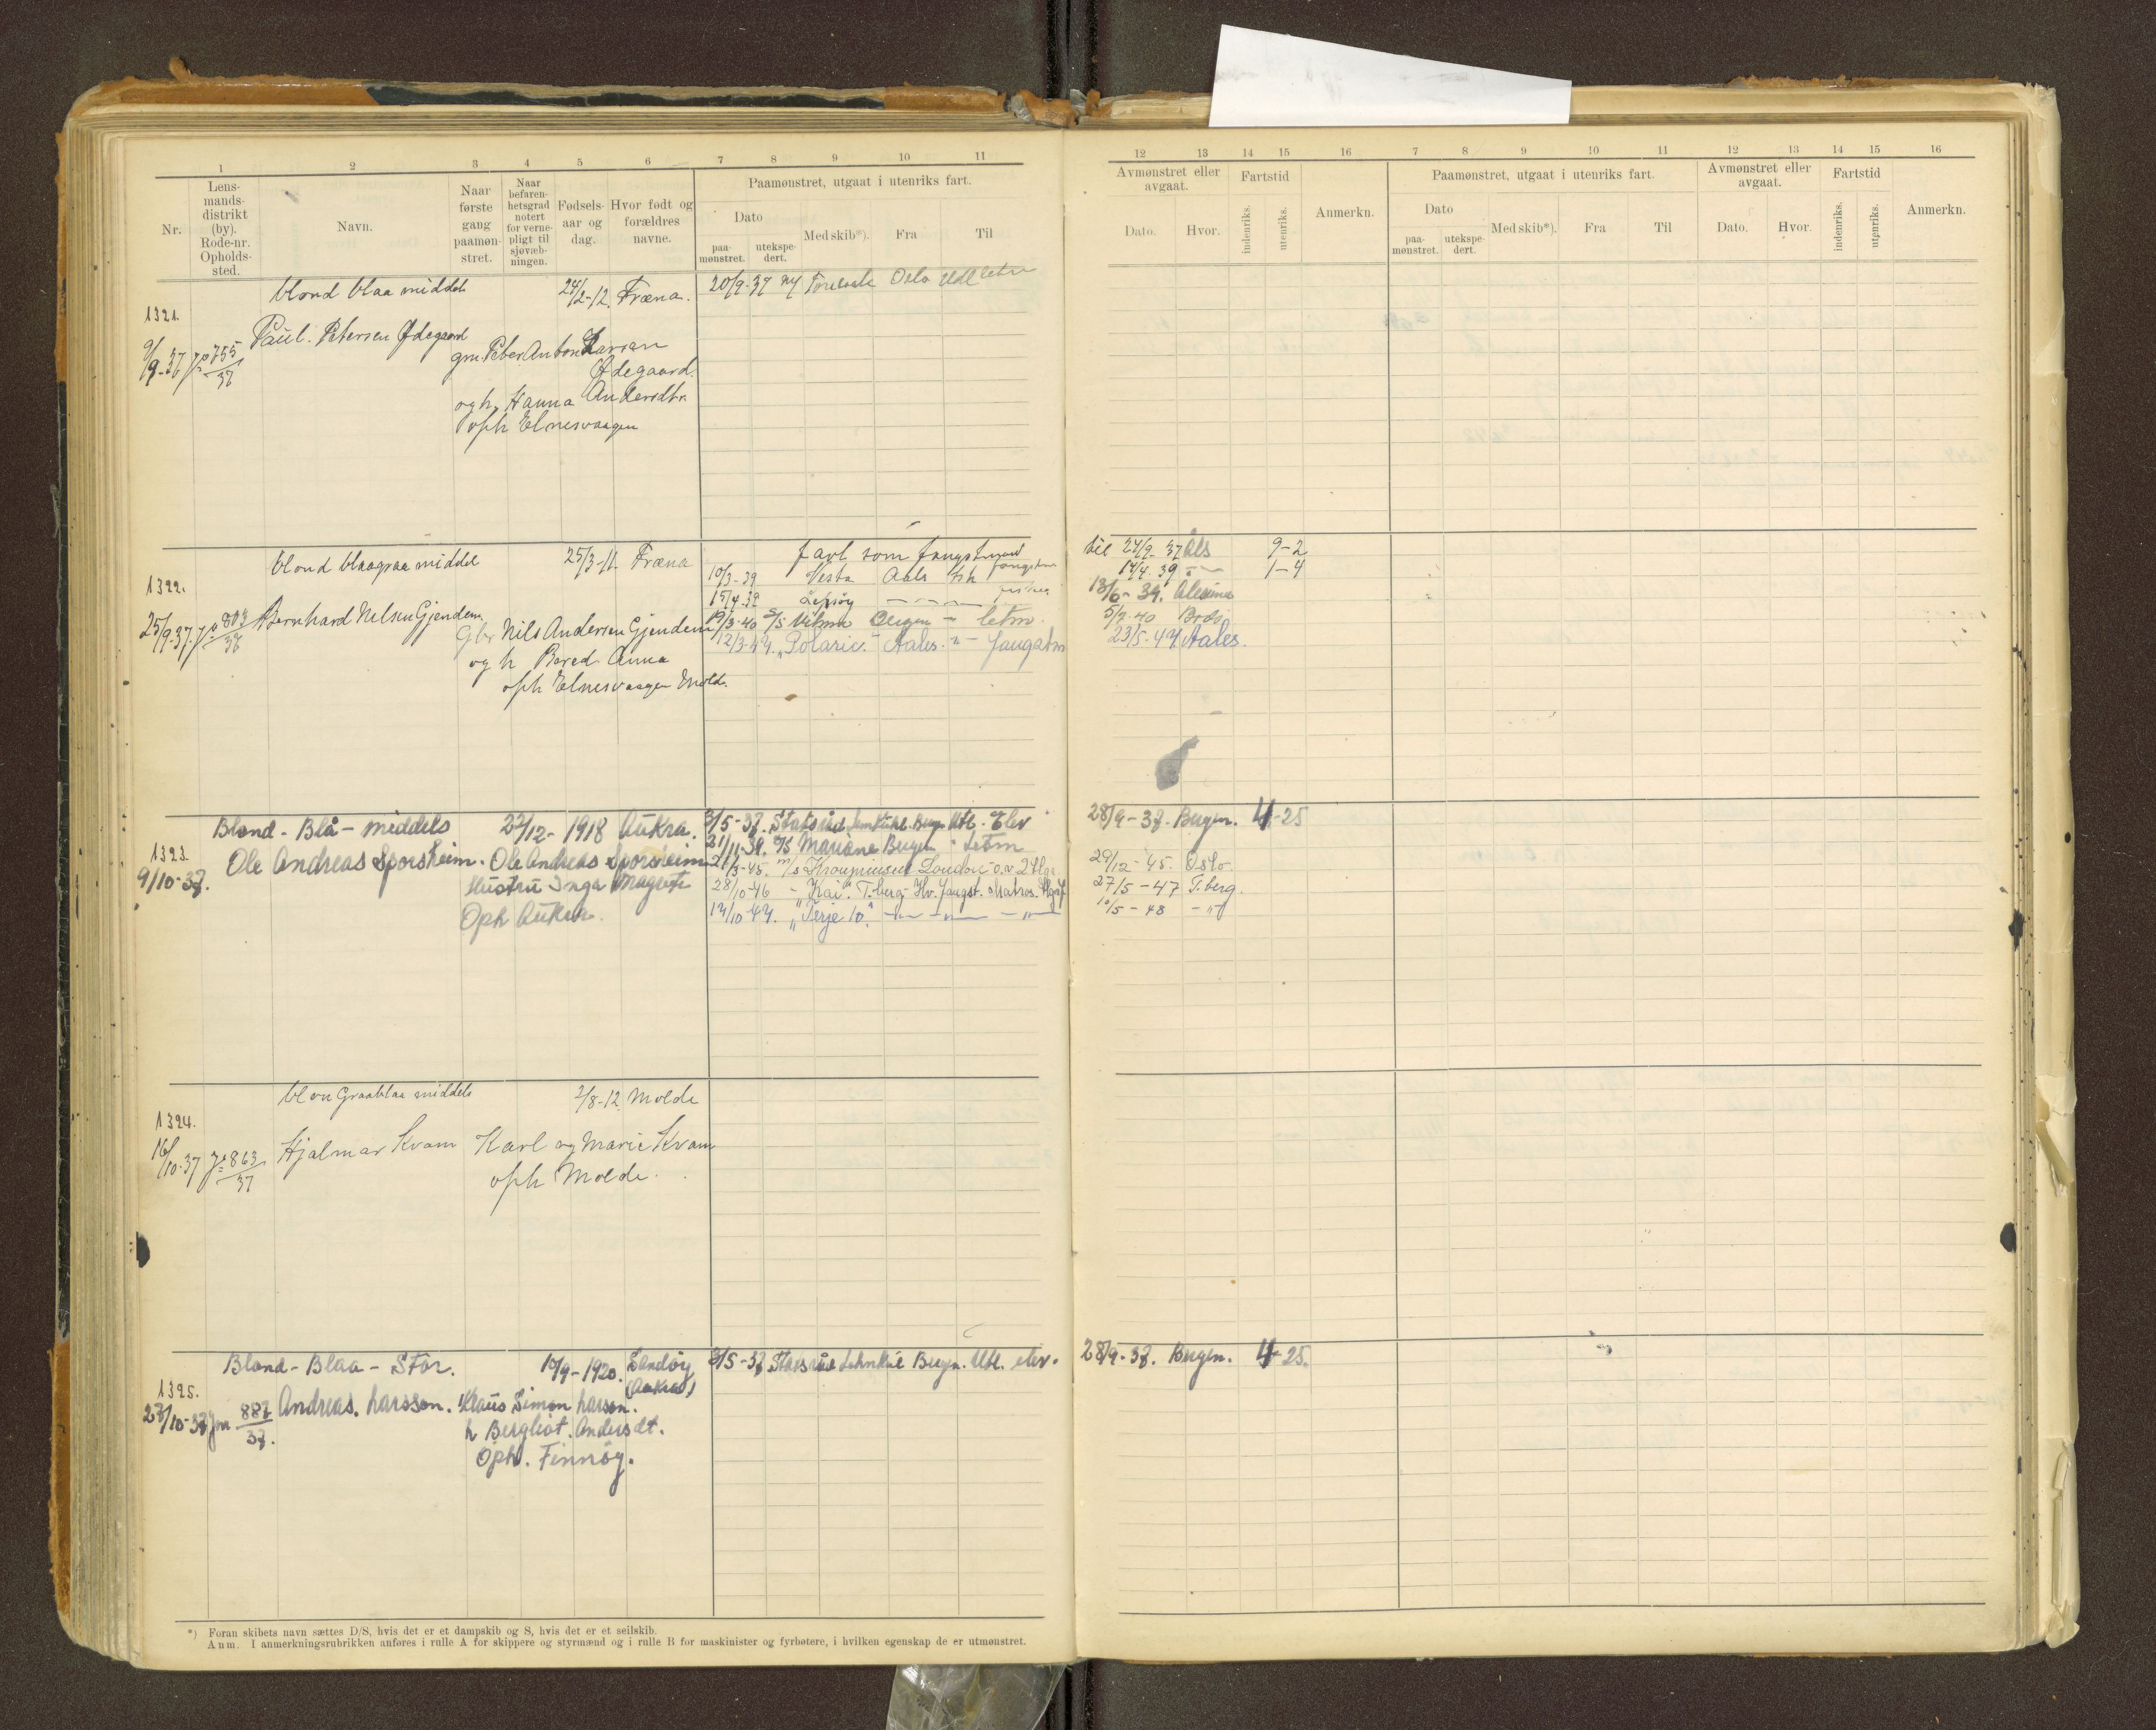 1 2 3 4 5 6 7 8 9 10 11
Nr.
Lens-
mands-
distrikt
(by).
Rode-nr.
Opholds-
sted.
Navn.
Naar
første
gang
paamøn-
stret.
Naar
befaren-
hetsgrad
notert
for verne-
pligt til
sjøvæb-
ningen.
Fødsels-
aar og
dag.
Hvor født og
forældres
navne.
Paamønstret, utgaat i utenriks fart.
Dato
paa-
mønstret.
utekspe-
dert.
Med skib*).
Fra
Til
12 13 14 15 16 7 8 9 10 11 12 13 14 15 16
Avmønstret eller
avgaat.
Dato.
Hvor.
Fartstid
indenriks.
utenriks.
Anmerkn.
Paamønstret, utgaat i utenriks fart.
Dato
paa-
mønstret.
utekspe-
dert.
Med skib*).
Fra
Til
Avmønstret eller
avgaat.
Dato.
Hvor.
Fartstid
indenriks.
utenriks.
Anmerkn.
blond blaa middels 24/2-12. Fræna. 20/9-37 Oslo
1321.
9/9-37 755/37 Paul. Petersen Ødegaard
gm. Peter Anton Larsen
Ødegaard.
og h. Hanna Andersdtr.
oph Elnesvaagen
blond blaagraa middel 25/3-11. Fræna Jarl som fangstmand til 24/9-37 Als 9-2
10/3-39 Vesta Aals Ish fangstm 14/4.39 -"- 1-4
1322.
15/4.39 Lepsøy 13/6-39.
25/9.37. 803/37 Bernhard Nilsen Gjendem. Gbr Nils Andersen Gjendem 19/3-40 S/S Bergen - letm. 5/7-40 Bodø
12/3-47. "Polaric." Aales. -"- Fangstm 23/5-47 Aales.
og h Bered. Anna
oph Elnesvaagen Molde.
Blond - Blå - middels 22/12-1918 Aukra. 3/5-37. Statsråd Lemkuhl. Bergn Utl. Elev 28/9-37. Bergen. 4-25
1323.
9/10-37. Ole Andreas Sporsheim. Ole Andreas Sporsheim
21/11-39. M/S Mariane Bergen - Letm
Hustru Inga Magrete
m/s Kronprinsen London - 29/12-45. Oslo.
28/10-46 - "Kai". T.berg - Hv. fangst. Matros. 27/5-47 T.berg.
Oph Aukra.
14/10-47. "Terje 10." -"- -"- -"- 10/5-48 -"-
blon Graablaa middels 2/8-12. Molde
1324.
16/10-37 863/37 Hjalmar Kvam Karl og Marie Kvam
oph Molde.
Blond - Blaa - Stor. 10/9-1920. Sandøy 3/5-37 Statsråd Lehmkul Bergn. Utl. elev. 28/9-37. Bergen. 4-25.
(Aukra)
1325.
27/10-37 Jnr 887/37. Andreas. Larsson. Klaus Simon Larsson.
h Bergliot. Andersdt.
Oph. Finnøy.
*) Foran skibets navn sættes D/S, hvis det er et dampskib og S, hvis det er et seilskib.
Anm. I anmerkningsrubrikken anføres i rulle A for skippere og styrmænd og i rulle B for maskinister og fyrbøtere, i hvilken egenskap de er utmønstret.